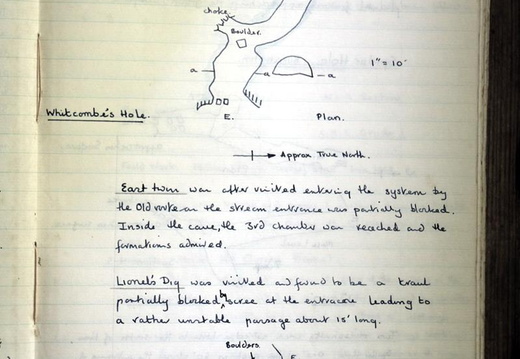 choke
Boulder.
a
a
a
1" = 10'
Whitcombe's Hole.
E.
Plan.
Approx True North.
East twin was after visited entering the system by
the Old route as the stream entrance was partially blocked.
Inside the cave, the 3rd chamber was reached and the
formations admired.
Lionel's Dig was visited and found to be a
partially blocked by scree at the entrance leading to
a rather unstable passage about 15' long.
Boulders
E